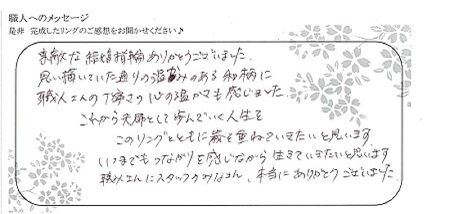 職人へのメッセージ
是非 完成したリングのご感想をお聞かせください♪
素敵な結婚指輪ありがとうございました。
思い描いていた通りの温かみのある和柄に
職人さんの丁寧さ、心の温かさも感じました。
これから夫婦として歩んでいく人生を
このリングとともに歳を重ねていきたいと思います。
いつまでもつながりを感じながら生きていきたいと思います
職人さんにスタッフのみなさん、本当にありがとうございました。